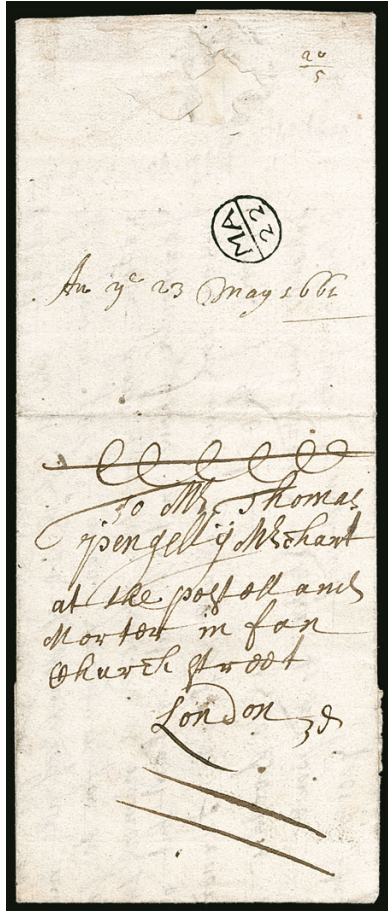 20
5
MA
22
An yᵉ 23 May 1661
To Mr. Thomas
pengelly Mrchant
at the postell and
Morter in fan
Church street
London 3d